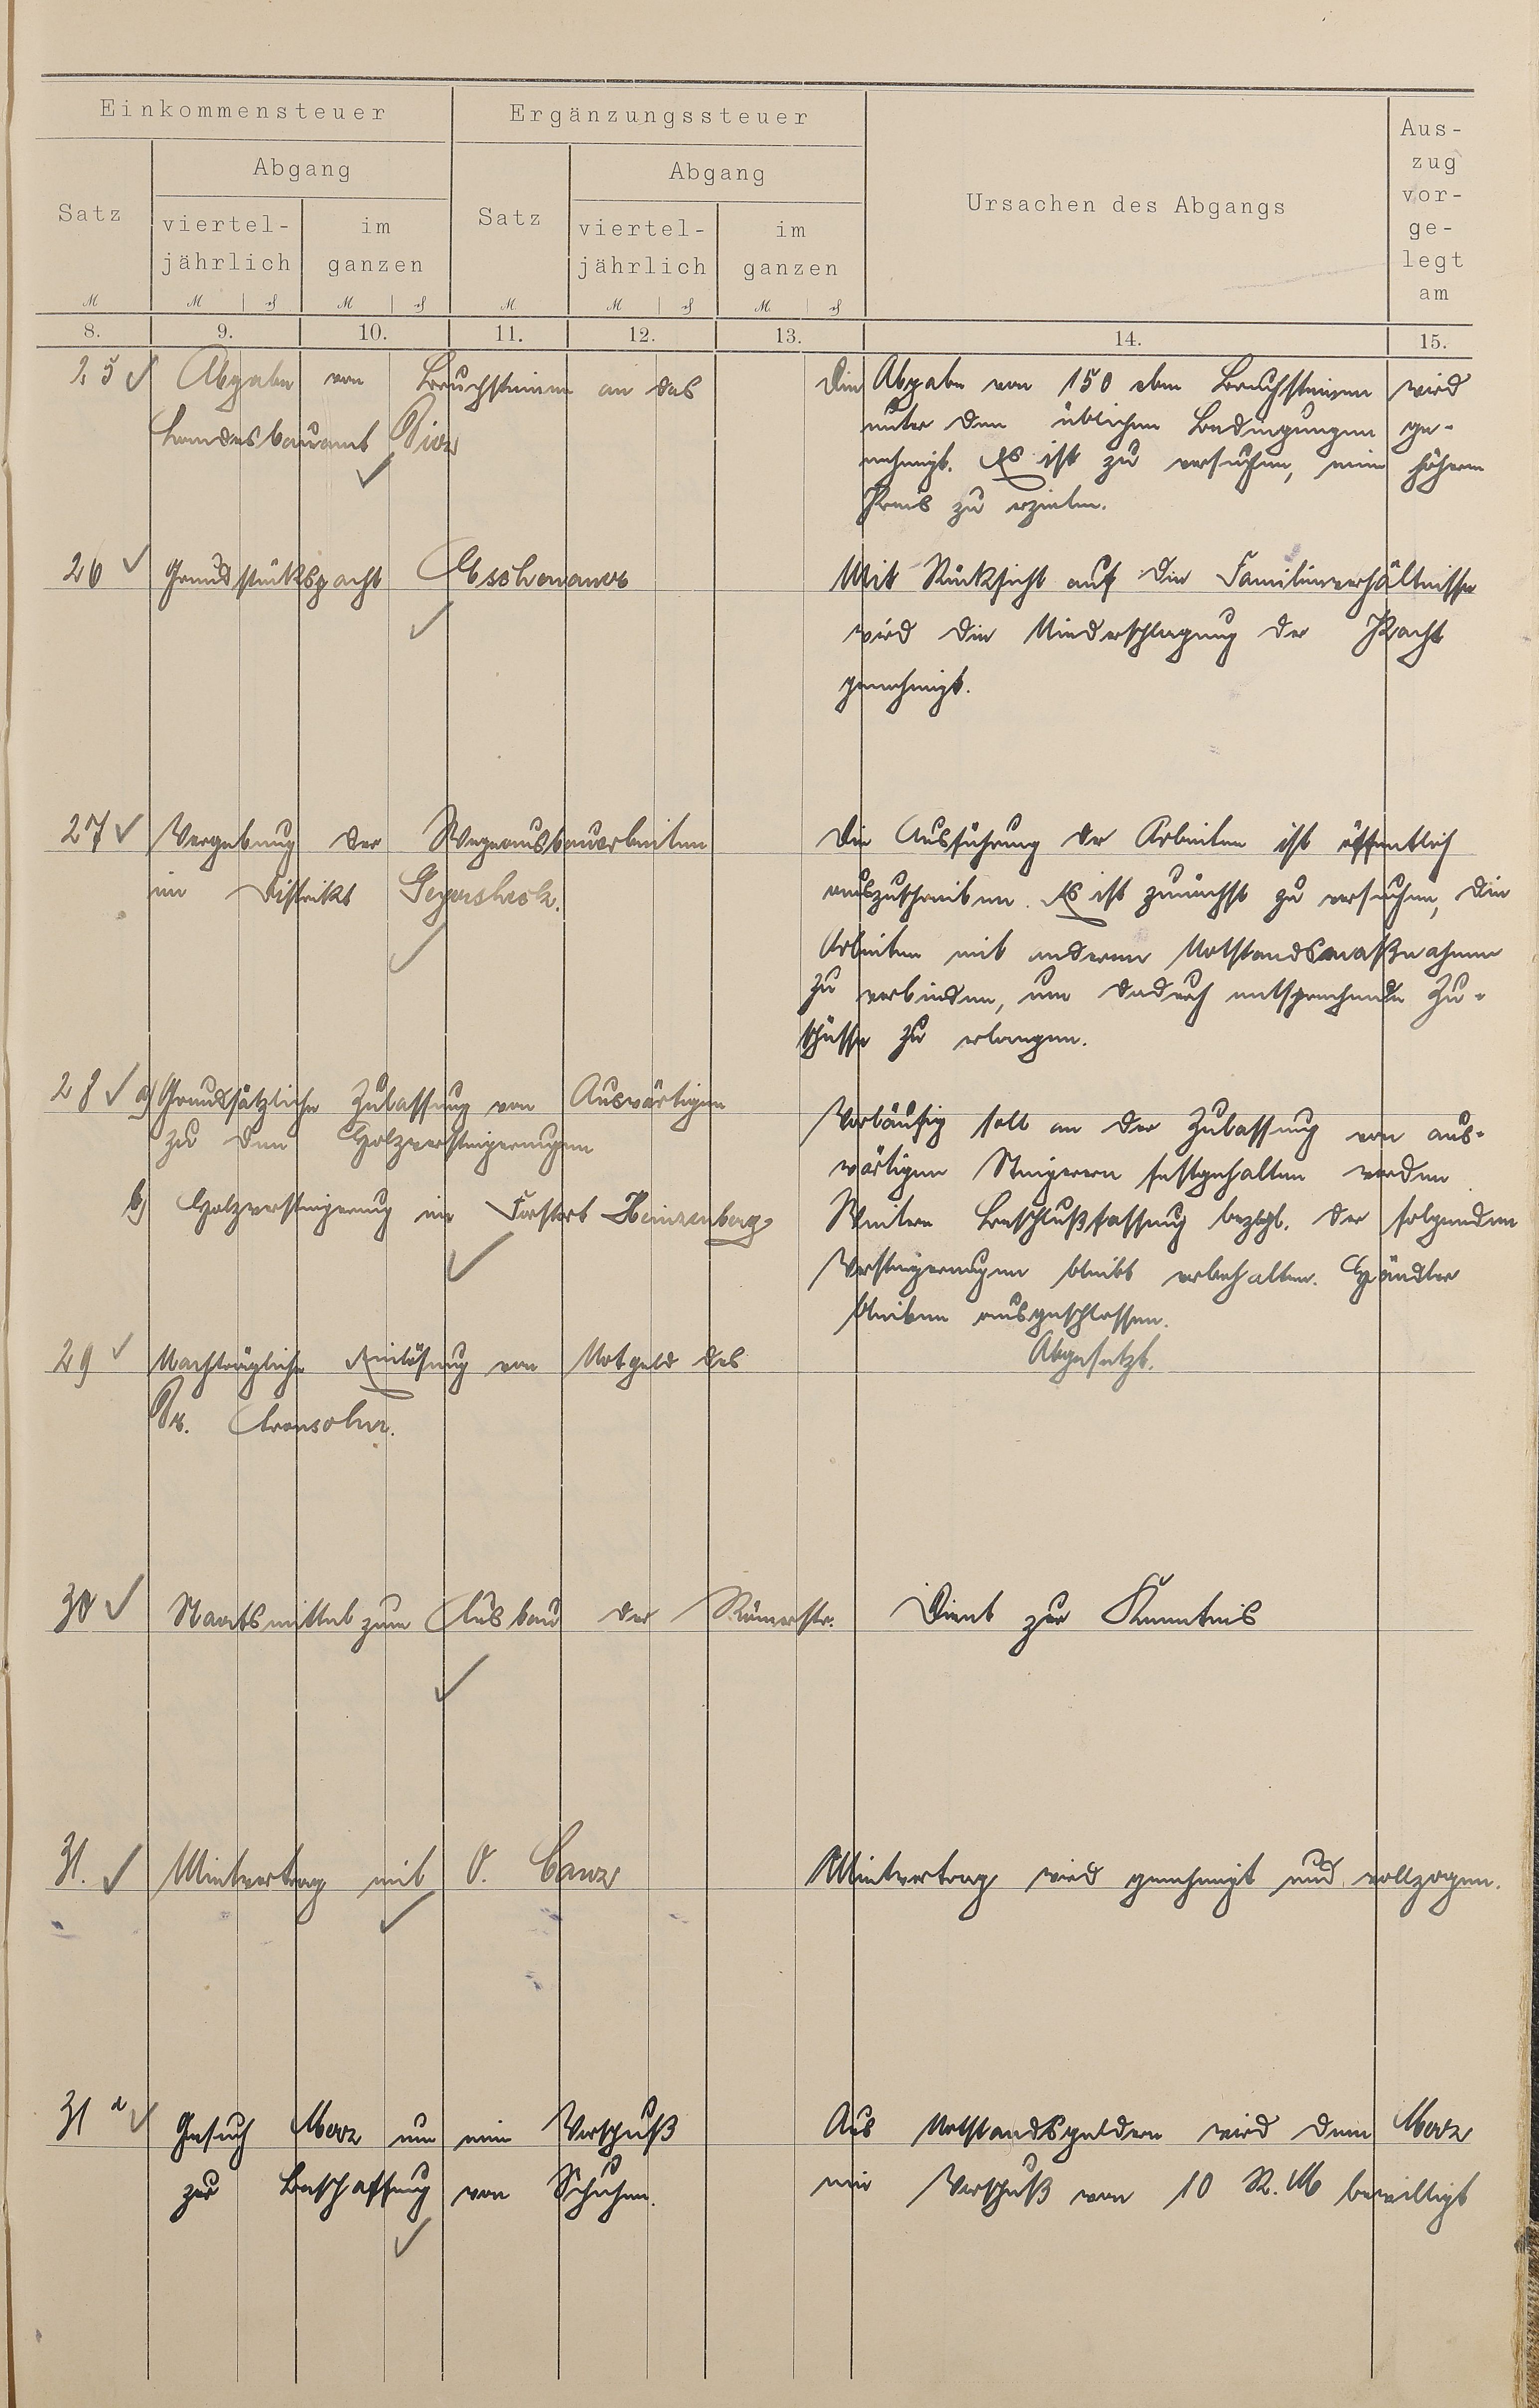 Einkommensteuer
Ergänzungssteuer
Ursachen des Abgangs
Aus-
zug
vor-
ge-
legt
am
Satz
Abgang
viertel-
jährlich
im
ganzen
Satz
Abgang
viertel-
jährlich
im
ganzen
M M ₰ M ₰ M M ₰ M ₰
8. 9. 10. 11. 12. 13. 14. 15.
25 Abgabe von Bruchsteinen an das
Landesbauamt Diez
Die Abgabe von 150 cbm Bruchsteinen wird
unter den üblichen Bedingungen ge-
nehmigt. Es ist zu versuchen, einen höheren
Preis zu erzielen.
26 Grundstückspacht Eschenauer
Mit Rücksicht auf die Familienverhältnisse
wird die Niederschlagung der Pacht
genehmigt.
27 Vergebung der Wegeausbauarbeiten
im Distrikt Geyersheck.
Die Ausführung der Arbeiten ist öffentlich
auszuschreiben. Es ist zunächst zu versuchen, die
Arbeiten mit anderen Notstandsmaßnahmen
zu verbinden, um dadurch entsprechende Zu-
schüsse zu erlangen.
28 a) Grundsätzliche Zulassung von Auswärtigen
zu den Holzversteigerungen
b) Holzversteigerung im Forstort Heinzenberg
Vorläufig soll an der Zulassung von aus-
wärtigen Steigerern festgehalten werden
Weitere Beschlußfassung bezgl. der folgenden
Versteigerungen bleibt vorbehalten. Händler
bleiben ausgeschlossen.
29 Nachträgliche Einlösung von Notgeld des
Dr. Aronsohn.
Abgesetzt.
30 Staatsmittel zum Ausbau der Römerstr.
Dient zur Kenntnis
31. Mietvertrag mit O. Canz
Mietvertrag wird genehmigt und vollzogen.
31 a Gesuch Merz um einen Vorschuß
zur Beschaffung von Schuhen.
Aus Notstandsgeldern wird dem Merz
ein Vorschuß von 10 R.M bewilligt